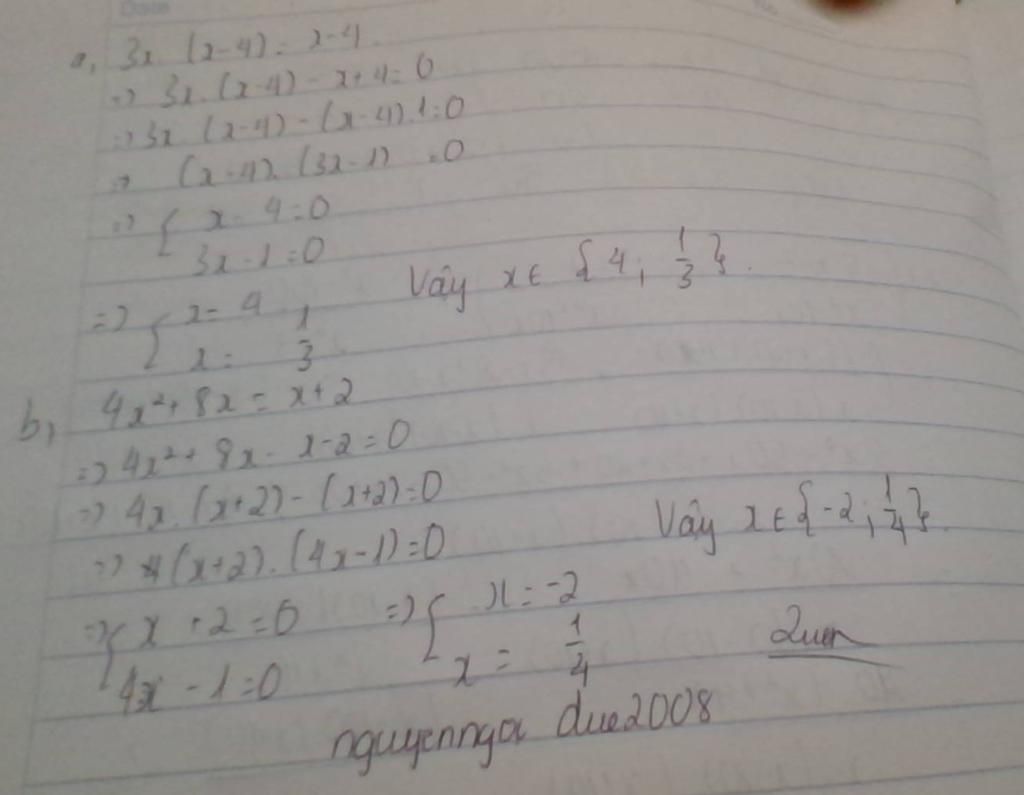 a, 3x (x-4) = x-4
=> 3x.(x-4) - x+4=0
=> 3x (x-4) - (x-4).1=0
=> (x-4).(3x-1) =0
=> { x-4=0
3x-1=0
=> { x= 4
x= 1/3
Vây x∈ {4; 1/3}.
b, 4x²+8x = x+2
=> 4x²+8x- x-2=0
=> 4x.(x+2)-(x+2)=0
=> (x+2).(4x-1)=0
=> { x+2=0
4x-1=0
=> { x=-2
x= 1/4
Vây x∈{-2; 1/4}.